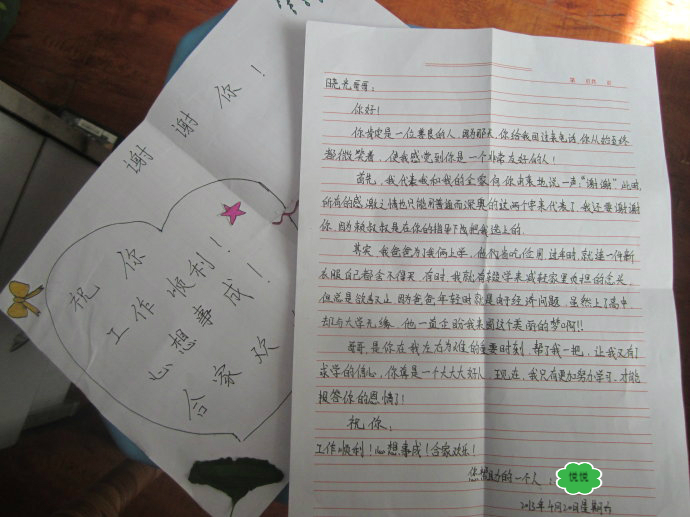 谢谢你！
祝你
工作顺利！
心想事成！
合家欢
第 页共 页
晓光哥哥：
你好！
你肯定是一位善良的人，因为那天，你给我回过来电话，你从始至终
都微笑着，使我感觉到你是一个非常友好的人！
首先，我代表我和我的全家向你由衷地说一声：“谢谢”此时，
所有的感激之情也只能用普通而深奥的这两个字来代表了。我还要谢谢
你，因为叔叔是在你的指导下才把我选上的。
其实，我爸爸为了我俩上学，他们省吃俭用，过年时，就连一件新
衣服自己都舍不得买，有时，我就有辍学来减轻家里负担的念头，
但总是欲言又止，因为爸爸年轻时就是由于经济问题，虽然上了高中，
却与大学无缘，他一直企盼我来圆这个美丽的梦啊!!!
哥哥，是你在我左右为难的重要时刻，帮了我一把，让我又有了
求学的信心，你算是一个大大大好人，现在，我只有更加努力学习，才能
报答你的恩情了！
祝你：
工作顺利！心想事成！合家欢乐！
您帮助的一个人：悦悦
2013年4月20日星期六